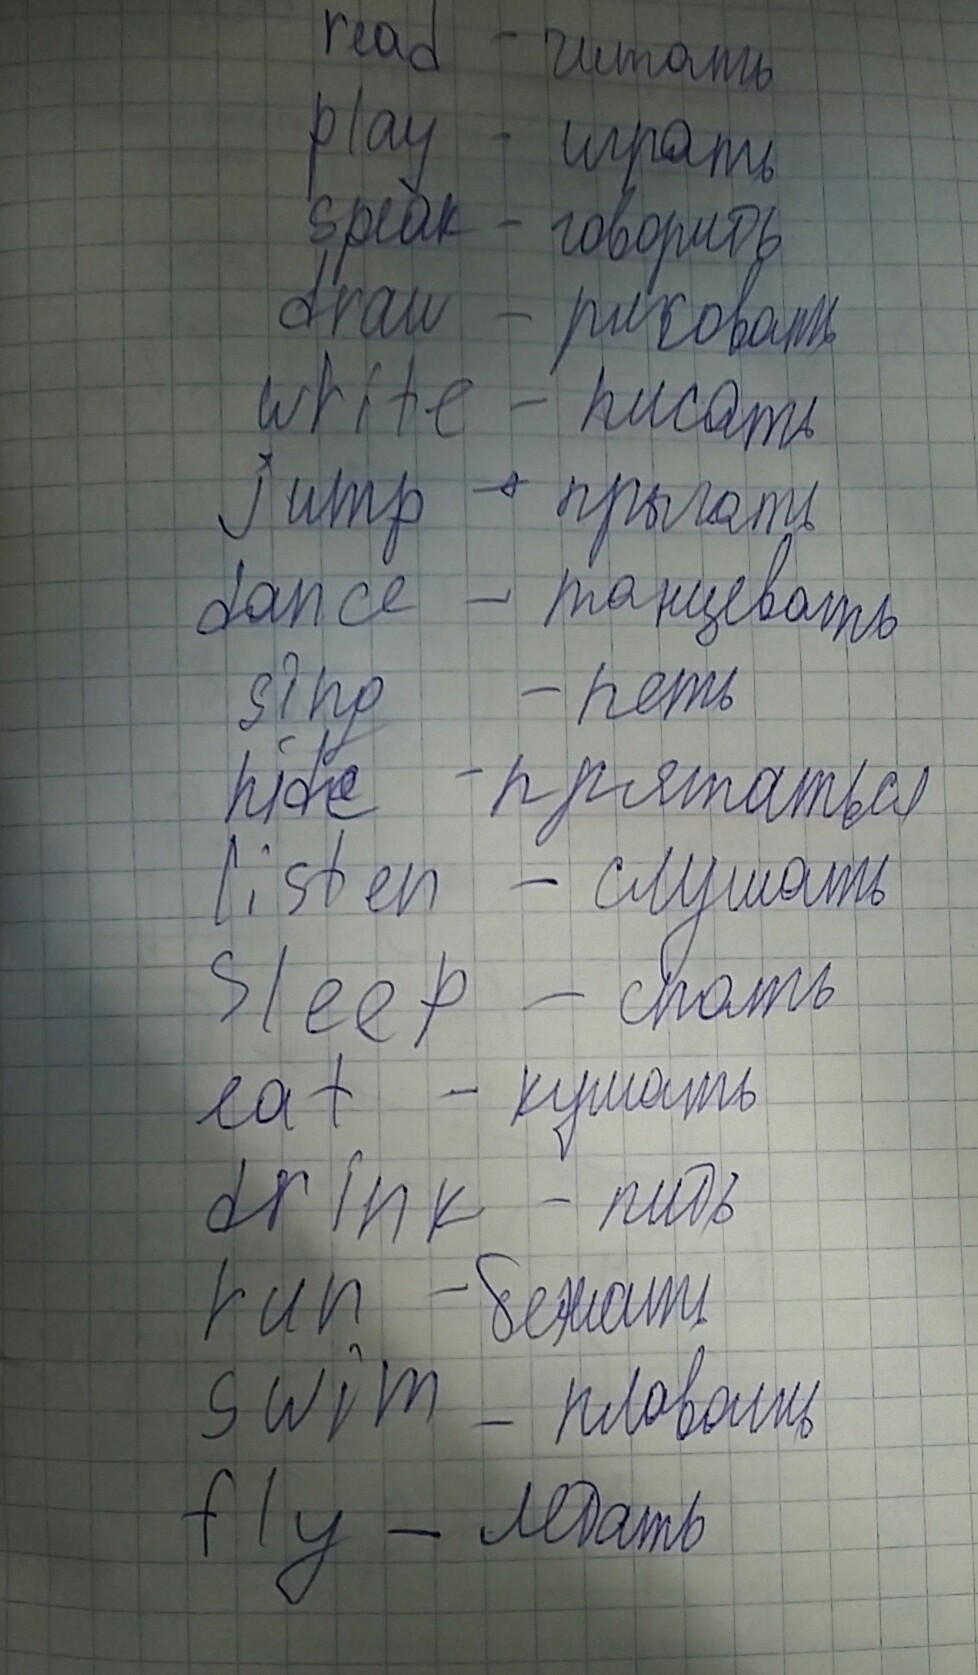 read - читать
play - играть
speak - говорить
draw - рисовать
write - писать
jump - прыгать
dance - танцевать
sing - петь
hide - прятаться
listen - слушать
Sleep - спать
eat - кушать
drink - пить
run - бежать
swim - плавать
fly - летать